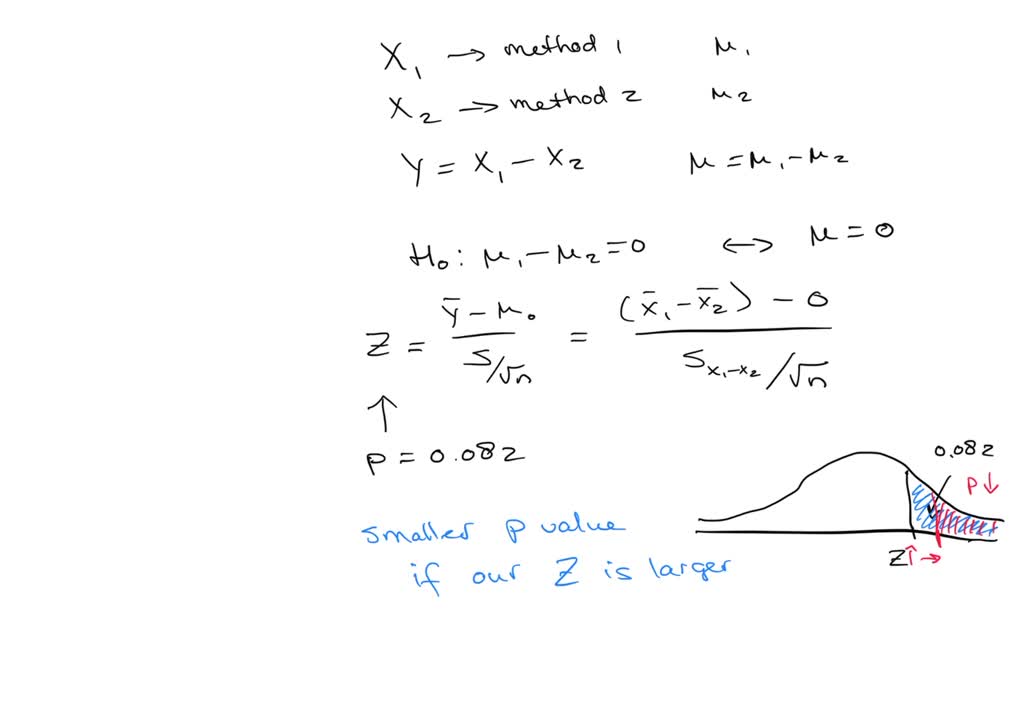 X₁ → method 1 μ₁
X₂ → method 2 μ₂
Y = X₁ - X₂ μ = μ₁ - μ₂
H₀: μ₁ - μ₂ = 0 ↔ μ = 0
Z = (Ȳ - μ₀) / (S/√n) = ((X̄₁ - X̄₂) - 0) / (S_{X₁-X₂}/√n)
↑
p = 0.082
0.082
P↓
Z↑→
smaller p value
if our Z is larger